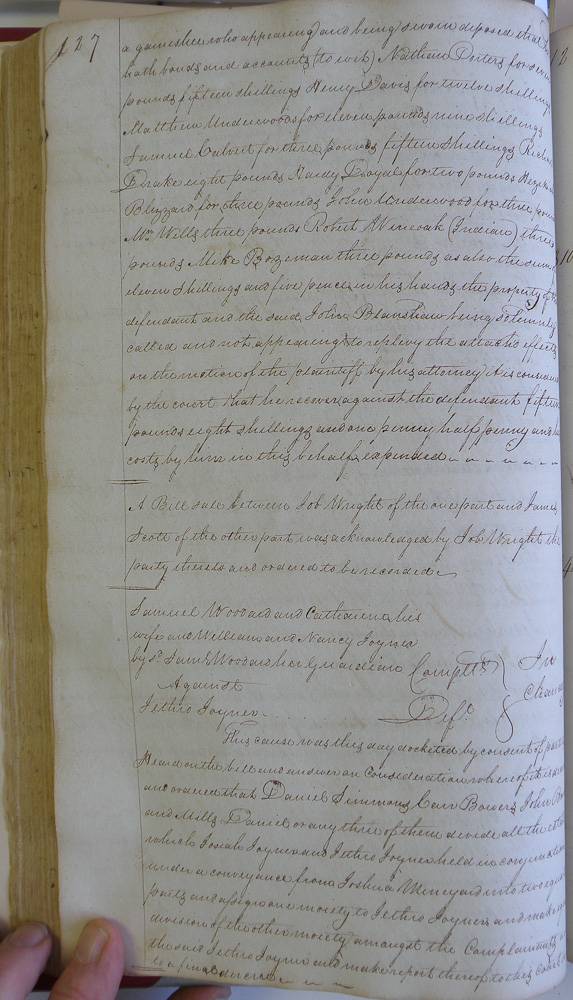 127
a garnishee who appearing and being sworn deposed that he
hath bonds and accounts (to wit) Nathan Porters for seven
pounds fifteen shillings Henry Davis for twelve shillings
Matthew Underwoods for eleven pounds nine shillings
Samuel Calvert for three pounds fifteen shillings Richd
Drake eight pounds Hardy Doyal for two pounds Hezekiah
Blizzard for three pounds John Underwood for three pounds
Mr Wills three pounds Robert Wineoak (Indian) three
pounds Mike Bozeman three pounds as also the sum of
eleven shillings and five pence in his hands the property of the
defendant and the said John Blanshaw being solemnly
called and not appearing to replevy the attach'd effects
on the motion of the plaintiff by his attorney it is considered
by the court that he recover against the defendant fifteen
pounds eight shillings and one penny half penny and his
costs by him in this behalf expended
A Bill sale between Job Wright of the one part and James
Scott of the other part was acknowledged by Job Wright the
party thereto and ordered to be recorded
Samuel Woodard and Catharine his
wife and William and Nancy Joyner
by sd. Saml Woodard her Guardian Complts
Against In
Jethro Joyner Deft. Chan
This cause was this day docketed by consent of parties
Heard on the bill and answer on Consideration whereof it is
and ordered that Daniel Simmons Carr Bowers John
and Mills Daniel or any three of them devide all the
which Josiah Joyner and Jethro Joyner held in conjunction
under a conveyance from Joshua Mineyard into two equal
parts and assign one moiety to Jethro Joyner and make
division of the other moiety amongst the Complainants
the said Jethro Joyner and make report thereof to the Court
to a final decree